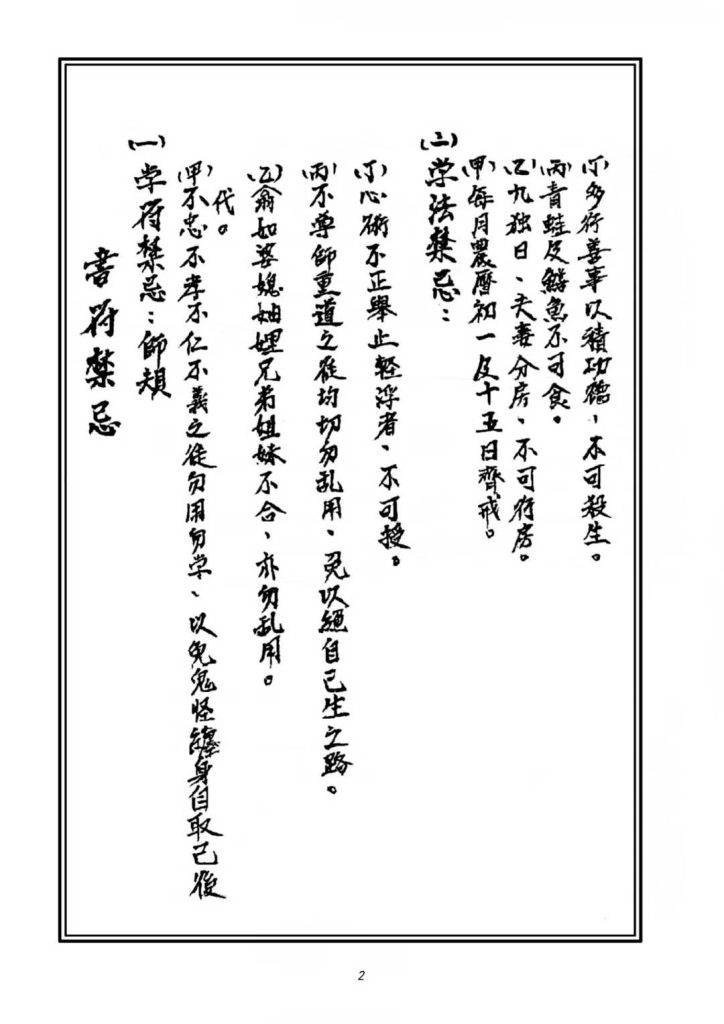 書符禁忌
(一)学符禁忌：師
(甲)不忠不孝不仁不義之徒勿用勿学、以免鬼怪纏身自取己後
代。
(乙)翁如婆媳妯娌兄弟姐妹不合、亦勿乱用。
(丙)不尊師重道之徒均切勿乱用、免以絕自己生之路。
(丁)心術不正舉止軽浮者、不可授。
(二)学法禁忌：
(甲)每月農曆初一及十五日齊戒。
(乙)九独日、夫妻分房、不可行房。
(丙)青蛙及鱔魚不可食。
(丁)多行善事以積功德、不可殺生。
2